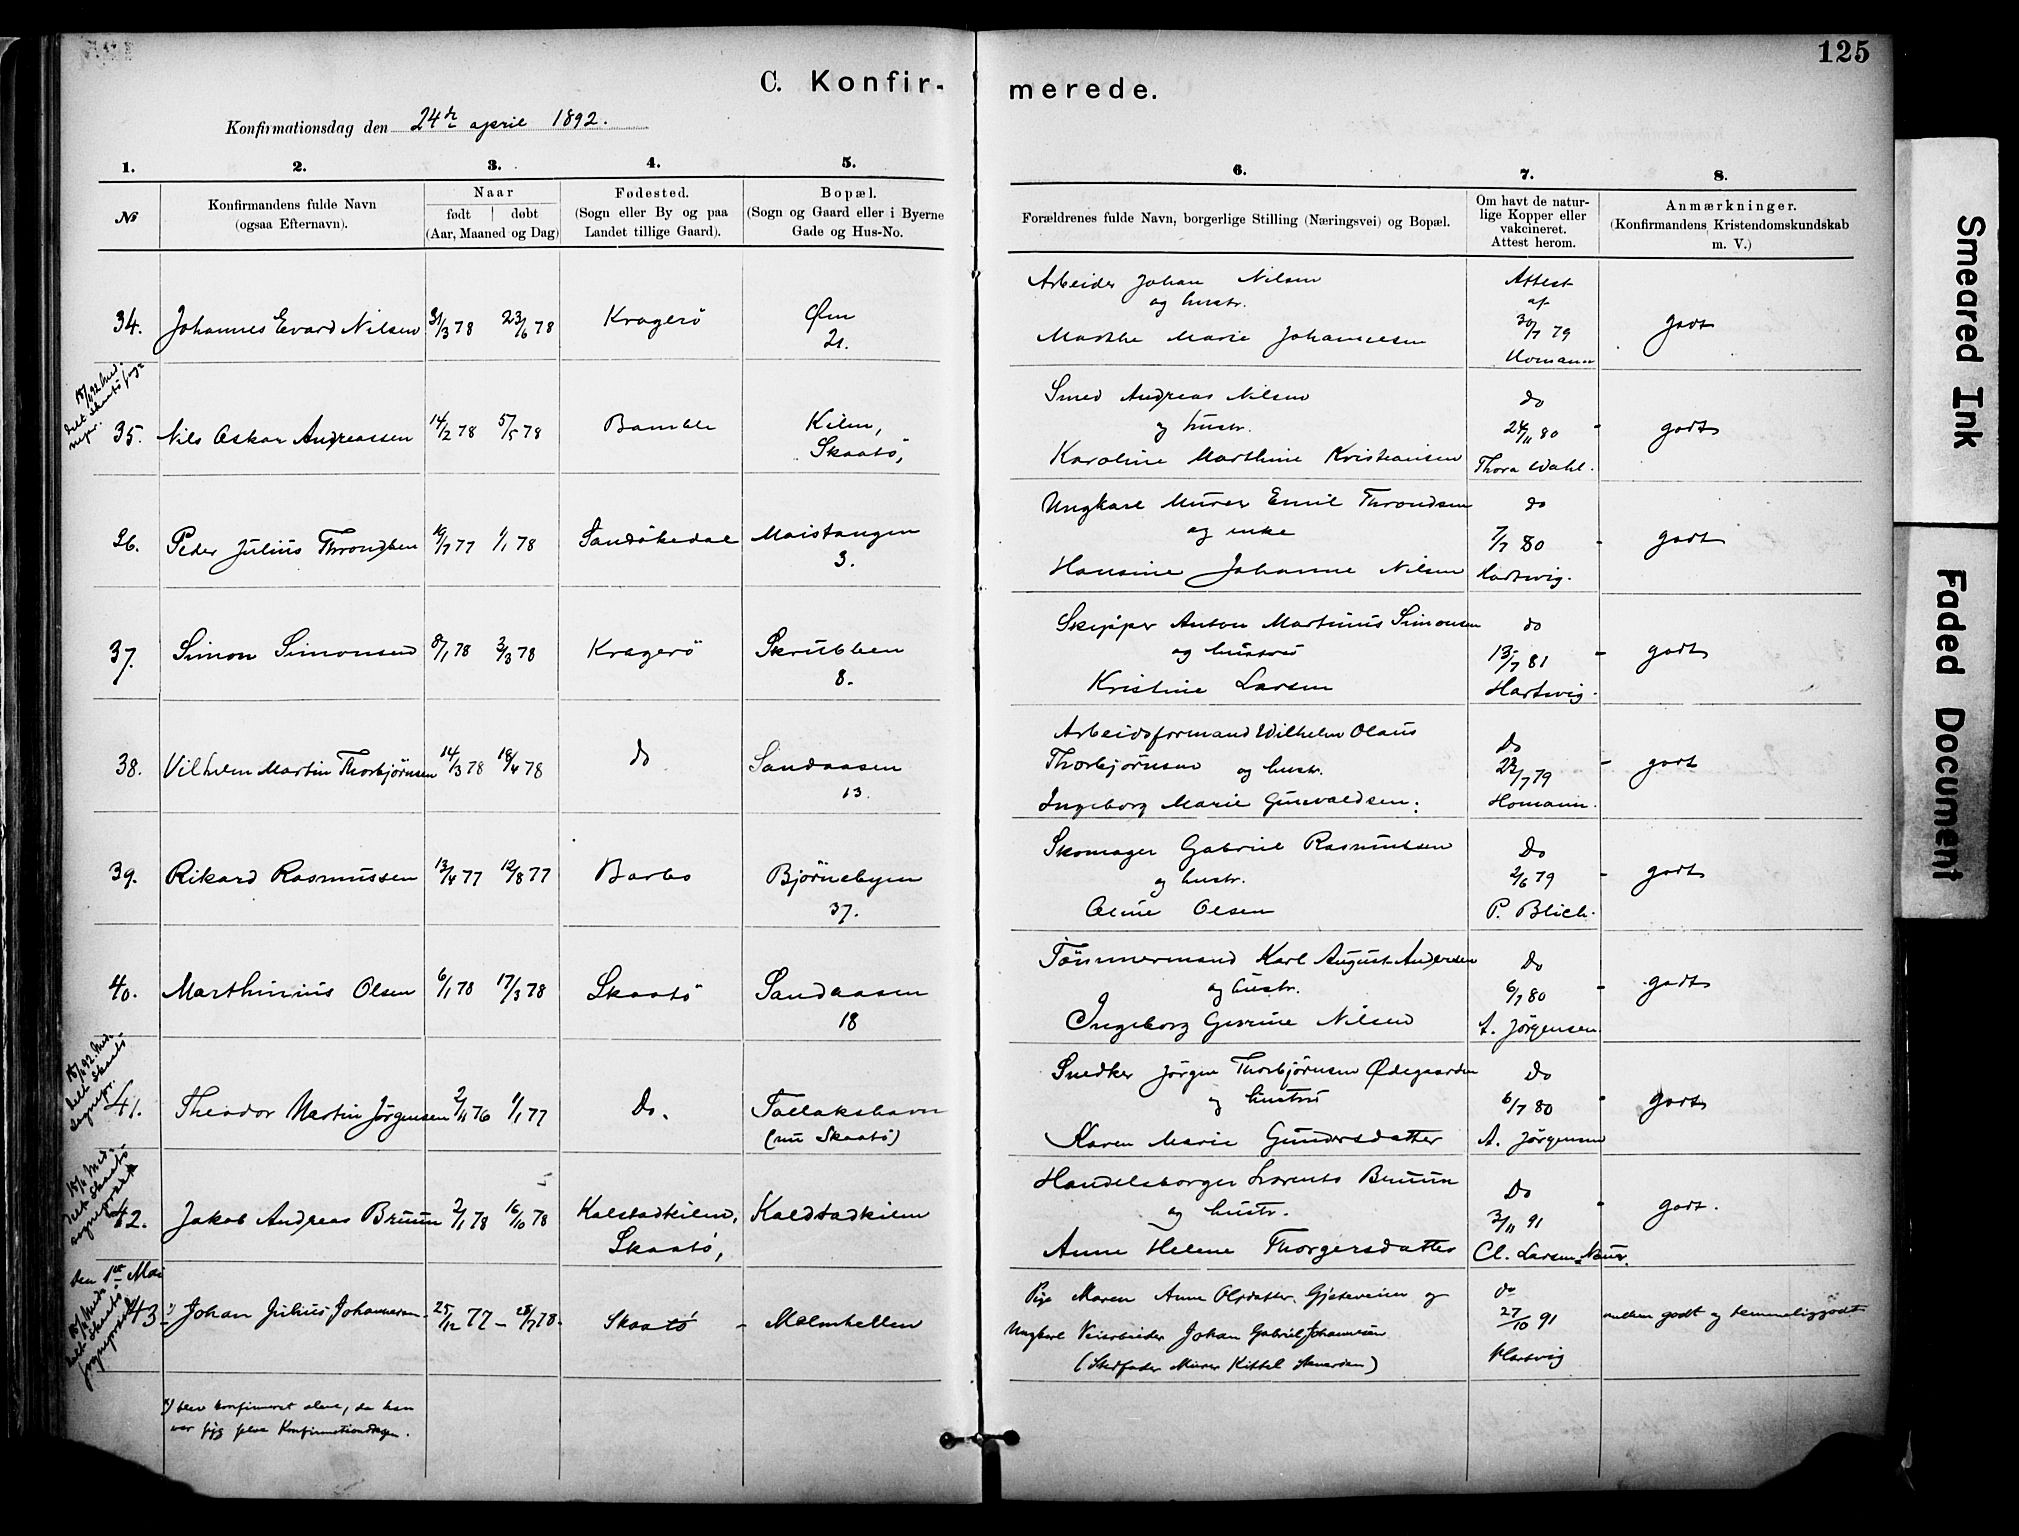 125
C. Konfir-
merede.
Konfirmationsdag den 24de april 1892.
1. 2. 3. 4. 5. 6. 7. 8.
No
Konfirmandens fulde Navn
(ogsaa Efternavn).
Naar
født | døbt
(Aar, Maaned og Dag)
Fødested.
(Sogn eller By og paa
Landet tillige Gaard).
Bopæl.
(Sogn og Gaard eller i Byerne
Gade og Hus-No.
Forældrenes fulde Navn, borgerlige Stilling (Næringsvei) og Bopæl.
Om havt de natur-
lige Kopper eller
vakcineret.
Attest herom.
Anmærkninger.
(Konfirmandens Kristendomskundskab
m. V.)
34. Johannes Evard Nilsen 31/3 78 23/6 78 Kragerö Øen
21.
Arbeider Johan Nilsen
og hustr.
Marthe Marie Johannesen
Attest
af
30/7 79
Homann
godt
18/6 92 Med-
delt Skaatö sogne
35. Nils Oskar Andreassen 14/2 78 5/5 78 Bamble Kilen,
Skaatö,
Smed Andreas Nilsen
og hustr.
Karoline Marthine Kristiansen
do
24/11 80
Thora Wahl.
godt
36. Peder Julius Throndsen 19/7 77 1/1 78 Sandökedal Maistangen
3.
Ungkarl Murer Emil Throndsen
og enke
Hansine Johanne Nilsen
do
7/7 80
Hartwig.
godt
37. Simon Simonsen 8/1 78 3/3 78 Kragerö Skrubben
8.
Skipper Anton Martinius Simonsen
og hustru
Kristine Larsen
do
13/7 81
Hartwig.
godt
38. Vilhelm Martin Thorbjørnsen 14/3 78 18/4 78 do Sandaasen
13.
Arbeidsformand Wilhelm Olaus
Thorbjørnsen og hustr.
Ingeborg Marie Gunvaldsen.
Do
22/7 79
Homann.
godt
39. Rikard Rasmussen 13/4 77 12/8 77 Barbo Björnebyen
37.
Skomager Gabriel Rasmussen
og hustr.
Oline Olsen
Do
2/6 79
P. Blich.
godt
40. Marthinius Olsen 6/1 78 17/3 78 Skaatö Sandaasen
18
Tömmermand Karl August Andersen
og hustr.
Ingeborg Gurine Nilsen
Do
6/7 80
A. Jørgensen
godt
18/6 92. Med-
delt Skaatö
sognepr.
41. Theodor Martin Jørgensen 2/11 76 1/1 77 Do. Tallakshavn
(nu Skaatö)
Snedker Jörgen Thorbjørnsen Ødegaarden
og hustru
Karen Marie Gundersdatter
Do
6/7 80
A. Jørgensen
godt
18/6 Med-
delt Skaatö
sogneprest
42. Jakob Andreas Bruun 2/1 78 16/10 78 Kalstadkilen,
Skaatö,
Kalstadkilen
Handelsborger Lorents Bruun
og hustr.
Anne Helene Thorgersdatter
Do
3/11 91
Cl. Larsen Naur.
godt.
den 1ste Mai
18/6 Med-
delt Skaatö
sogneprest
43 Johan Julius Johannesen 25/12 77 – 28/7 78. Skaatö – Malmhellen
Pige Maren Anne Olsdatter Gjeteveien og
Ungkarl Veiarbeider Johan Gabriel Johannesen
(Stedfader Murer Kittel)
do
27/10 91
Hartvig
mellem godt og temmelig godt
x) blev konfirmeret alene, da han
var syg selve Konfirmationsdagen.
Smeared Ink
Faded Document